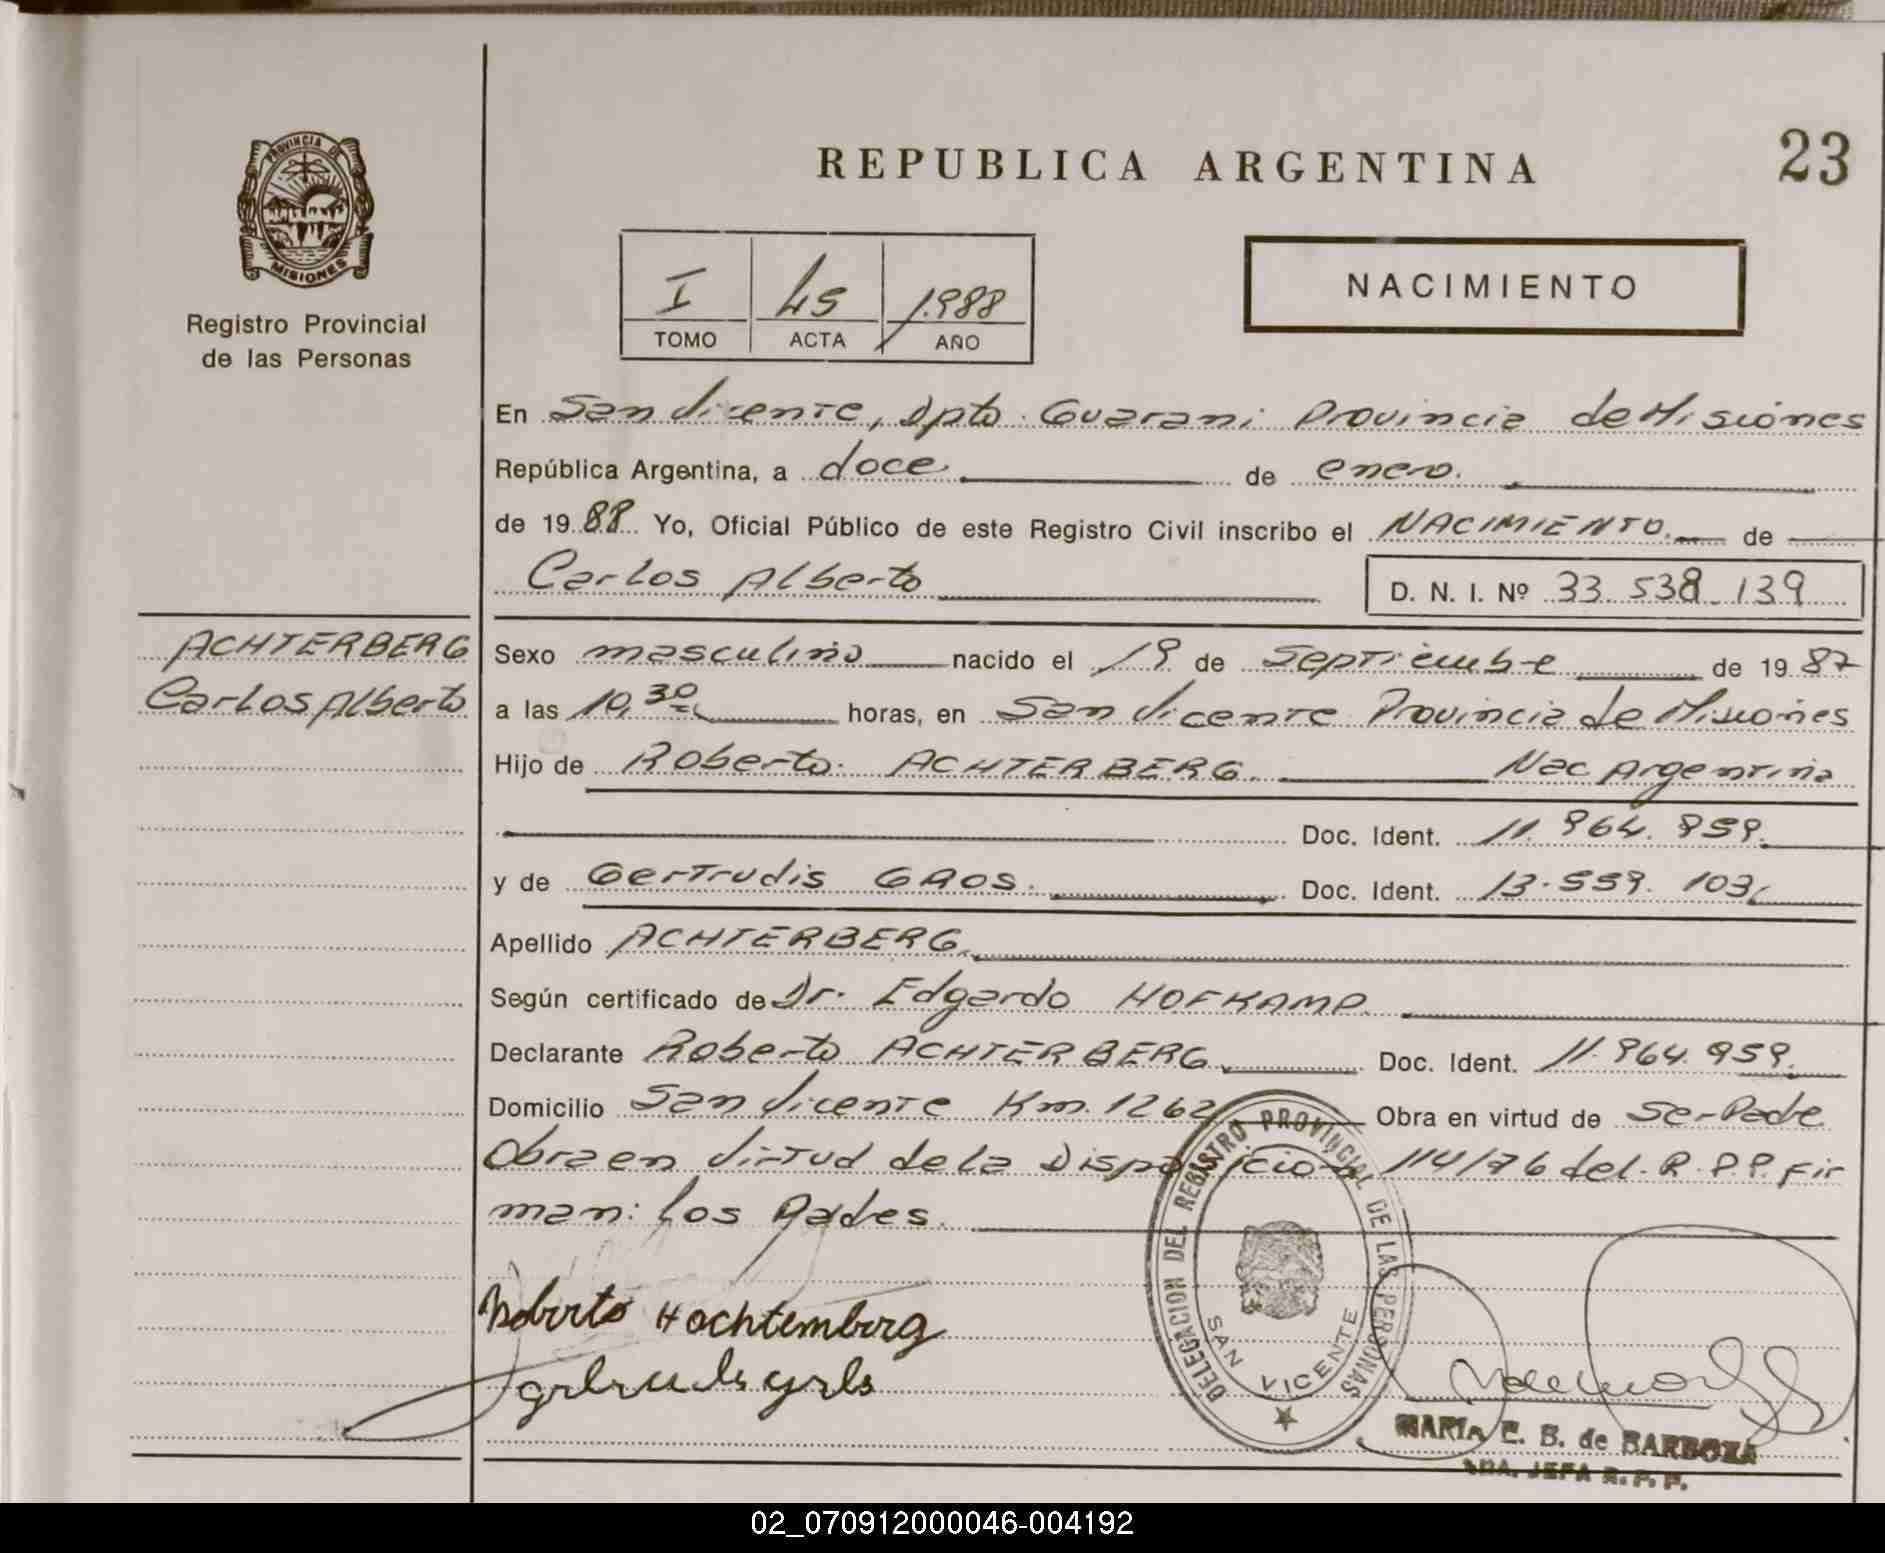 PROVINCIA DE
MISIONES
Registro Provincial
de las Personas
REPUBLICA ARGENTINA
23
I 45 1.988
TOMO ACTA AÑO
NACIMIENTO
En San Vicente, Dpto. Guarani Provincia de Misiones
República Argentina, a doce de enero.
de 19 88 Yo, Oficial Público de este Registro Civil inscribo el NACIMIENTO. de
Carlos Alberto D. N. I. Nº 33.538.139
ACHTERBERG
Carlos Alberto
Sexo masculino nacido el 19 de Septiembre de 19 87
a las 10,30 horas, en San Vicente Provincia de Misiones
Hijo de Roberto ACHTERBERG. Nac Argentina
Doc. Ident. 11.964.959.
y de Gertrudis GAOS. Doc. Ident. 13.559.103
Apellido ACHTERBERG
Según certificado de Dr. Edgardo HOFKAMP.
Declarante Roberto ACHTERBERG Doc. Ident. 11.964.959.
Domicilio San Vicente Km. 1262 Obra en virtud de Ser Padre
Obra en virtud de la Disposicion 114/76 del. R.P.P. Fir
man: Los Padres.
Roberto Hochtemberg
DELEGACION DEL REGISTRO PROVINCIAL DE LAS PERSONAS
SAN VICENTE
MARIA E. S. de BARBOZA
JEFA R. P. P.
02_070912000046-004192